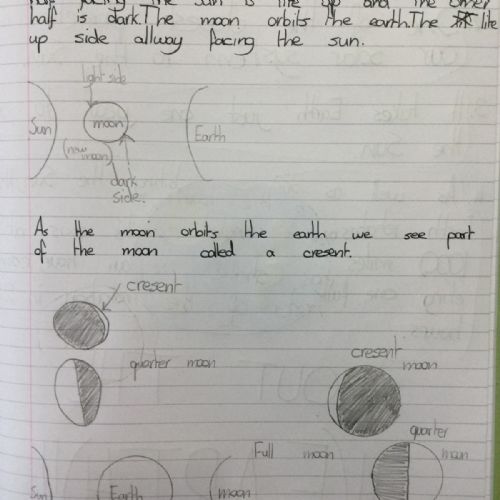 half facing the sun is lite up and the other
half is dark. The moon orbits the earth. The lite
up side allway facing the sun.
light side
Sun
moon
Earth
(new moon)
dark side.
As the moon orbits the earth we see part
of the moon called a cresent.
cresent
quarter moon
cresent moon
quarter moon
Full moon
Sun
Earth
(moon